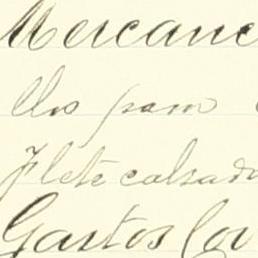 Mercanc
llos para
Flete calzado
Gastos Cor